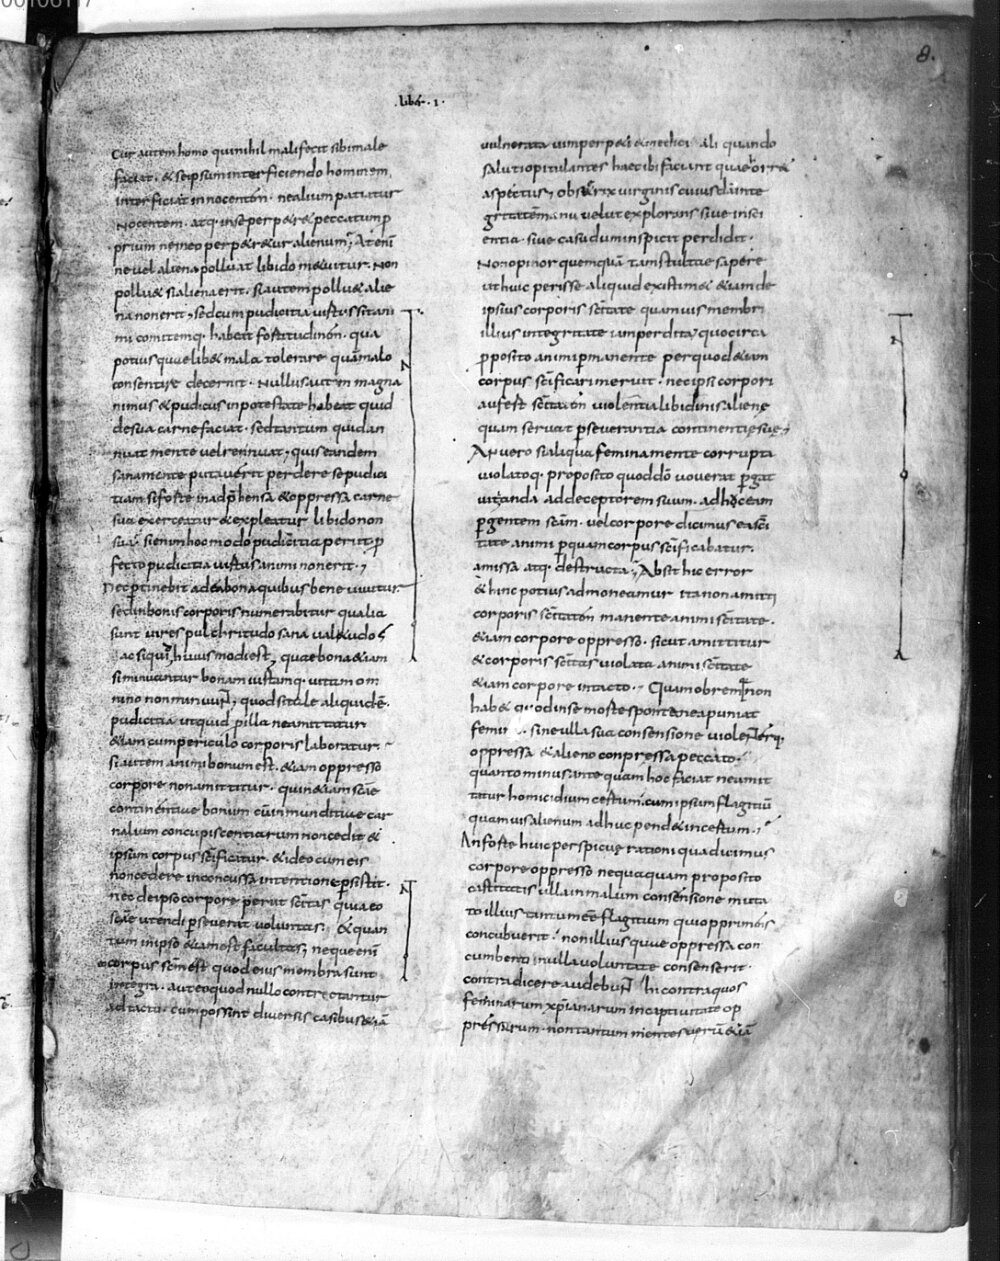 8.
.liber.I.
Cur autem homo qui nihil mali fecit sibi male
faciat. & seipsum interficiendo hominem
interficiat innocentem. ne alium patiatur
nocentem. atq. in se perp&r& peccatum p
prium ne in eo perp&r&ur alienum; At eni
ne uel aliena polluat libido m&uitur. Non
pollu& si aliena erit. Si autem pollu& alie
na non erit; sed cum pudicitia uirtus sit ani
mi comitemq. habeat fortitudinem. qua
potius quaelib& mala tolerare quam malo
consentire decernit. Nullus autem magna
nimus & pudicus in potestate habeat quid
de sua carne faciat. sed tantum quid an
nuat mente uel rennuat. quis eandem
sana mente putauerit perdere se pudici
tiam si forte in adphensa & oppressa carne
sua exerceatur & expleatur libido non
sua. si enim hoc modo pudicitia perit. p
fecto pudicitia uirtus animi non erit;
Nec ptinebit ad ea bona quibus bene uiuitur.
sed in bonis corporis numerabitur qualia
sunt uires pulchritudo sana ualetudo
ac siquid huius modi est, quae bona &iam
si minuantur bonam iustamq. uitam om
nino non minuunt, quod si tale aliquid e.
pudicitia utquid p illa ne amittatur
&iam cum periculo corporis laboratur.
Si autem animi bonum est. &iam oppresso
corpore non amittitur. quin &iam scae
continentiae bonum cum inmunditiae car
nalium concupiscentiarum non cedit &
ipsum corpus scificatur. & ideo cum eis
non cedere inconcussa intentione psistit.
nec de ipso corpore perit scitas quia eo
scae utendi pseuerat uoluntas; & quan
tum in ipso & iam est facultas; neque eni
eo corpus scm est quod eius membra sunt
integra. aut eo quod nullo contrectantur
ad tactu. cum possint diuersis casibus &ia
uulnerata uim perp&i & medici aliquando
saluti opitulantes haec ibi faciant quae orre
aspectus; obstetrix uirginis cuiusda inte
gritatem manu uelut explorans siue insci
entia. siue casu dum inspicit perdidit.
Non opinor quemqua tam stultae sapere
ut huic perisse aliquid existim& &iam de
ipsius corporis scitate quamuis membri
illius integritate iam perdita; quocirca
pposito animi pmanente per quod &iam
corpus scificari meruit. nec ipsi corpori
aufert scitatem uiolentia libidinis alienę
quam seruat pseuerantia continentię suę;
An uero si aliqua femina mente corrupta
uiolatoq. proposito quod do uouerat pgat
uitianda ad deceptorem suum. adhuc eam
pgentem scam. uel corpore dicimus ea sci
tate animi p quam corpus scificabatur.
amissa atq. destructa; Absit hic error
& hinc potius admoneamur ita non amitti
corporis scitatem manente animi scitate.
&iam corpore oppresso. sicut amittitur
& corporis scitas uiolata animi scitate
&iam corpore intacto; Quamobrem non
hab& q. od in se morte spontanea puniat
femina. sine ulla sua consensione uiolenterq.
oppressa & alieno conpressa peccato.
quanto minus antequam hoc faciat ne amit
tatur homicidium certum. cum ipsum flagitiu
quamuis alienum adhuc pend& incertum.;
An forte huic perspicue rationi qua dicimus
corpore oppresso nequaquam proposito
castitatis ulla in malum consensione muta
to illius tantum ee flagitium qui opprimens
concubuerit. non illius quae oppressa con
cumbenti nulla uoluntate consenserit.
contradicere audebunt hi contra quos
feminarum xpianarum in captiuitate op
pressarum. non tantum mentes ueru &ia